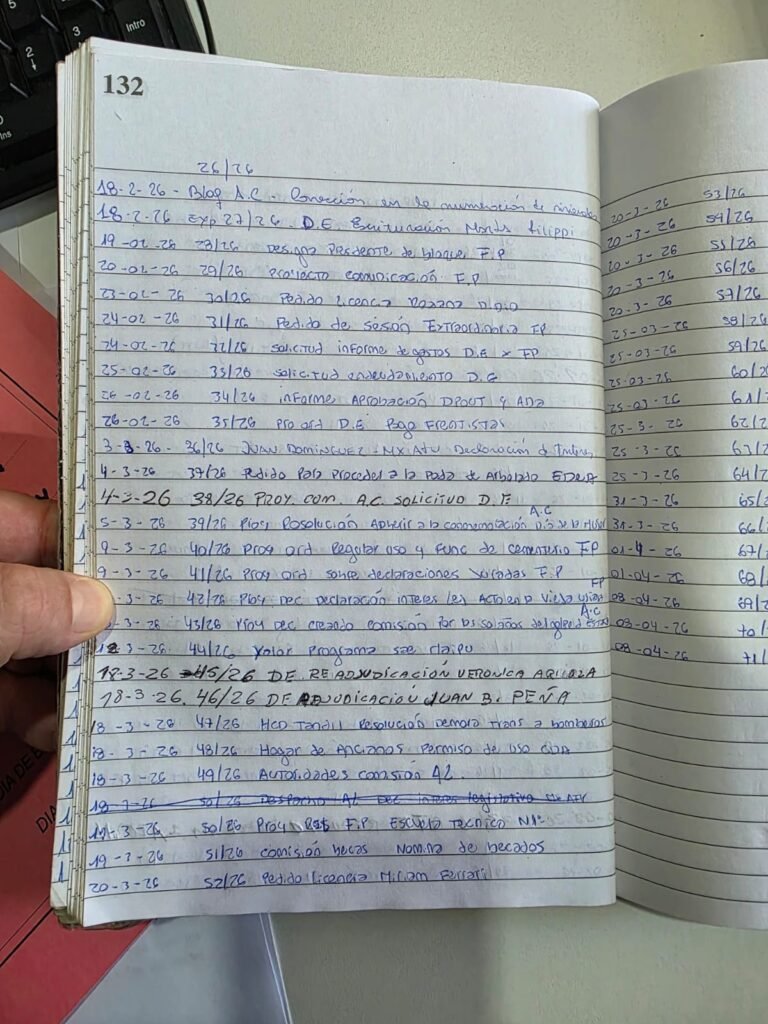 132
26/26
18-2-26 - Bloq A.C. Corrección en la numeración de
18-2-26 Exp 27/26 D.E. Filippi
19-02-26 28/26 Designa Presidente de bloque F.P
20-02-26 29/26 proyecto comunicación F.P
23-02-26 30/26 Pedido Licencia
24-02-26 31/26 Pedido de sesión Extraordinaria FP
24-02-26 32/26 solicitud informe de gastos D.E x FP
25-02-26 33/26 solicitud endeudamiento D.E
26-02-26 34/26 informe Aprobación DPOUT y ADA
26-02-26 35/26 pro ord D.E Pago FRENTISTAS
3-3-26- 36/26 JUAN DOMINGUEZ - Declaración d
4-3-26 37/26 Pedido para proceder a la Poda de Arbolado
4-3-26 38/26 PROY COM. A.C. SOLICITUD D.E.
A.C
5-3-26 39/26 Proy Resolución Adherir a la conmemoración Día de la
9-3-26 40/26 Proy ord Regular uso y Func de cementerio FP
9-3-26 41/26 Proy ord sobre declaraciones Juradas F.P
FP
-3-26 42/26 Proy Dec Declaración interes
A.C
-3-26 43/26 Proy Dec creando comisión por los
12-3-26 44/26 Valor Programa
18-3-26 45/26 DE READJUDICACIÓN VERONICA
18-3-26. 46/26 DE ADJUDICACIÓN JUAN B. PEÑA
18-3-26 47/26 HCD Tandil Resolución demora trans a bomberos
18-3-26 48/26 Hogar de Ancianos Permiso de uso
18-3-26 49/26 Autoridades comisión
18-3-26 50/26 Despacho Dec interes legislativo
19-3-26 50/26 Proy F.P Escuela Tecnica N1
19-3-26 51/26 comisión becas Nomina de becados
20-3-26 52/26 Pedido licencia Miriam Ferrari
20-3-26 53/26
20-3-26 54/26
20-3-26 55/26
20-3-26 56/26
20-3-26 57/26
25-03-26 58/26
25-03-26 59/26
25-03-26 60/2
25-03-26 61/
25-3-26 62/
25-3-26 63/
25-3-26 64/
31-3-26 65/
31-3-26 66/
01-4-26 67/
01-04-26 68/
08-04-26 69/
08-04-26 70/
08-04-26 71/
Intro
Ins